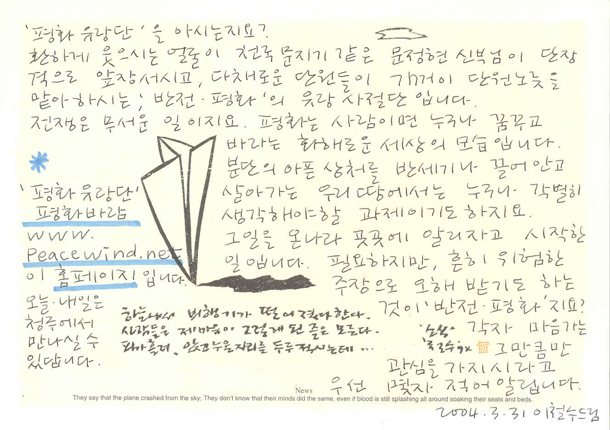 '평화 유랑단'을 아시는지요?
환하게 웃으시는 얼굴이 천국 문지기 같은 문정현 신부님이 단장
격으로 앞장서시고, 다채로운 단원들이 기꺼이 단원노릇을
맡아 하시는; 반전·평화'의 유랑 사절단 입니다.
전쟁은 무서운 일이지요. 평화는 사람이면 누구나 꿈꾸고
바라는 화해로운 세상의 모습입니다.
분단의 아픈 상처를 반세기나 끌어안고
살아가는 우리 땅에서는 누구나 각별히
생각해야 할 과제이기도 하지요.
그일을 온나라 곳곳에 알리자고 시작한
일입니다. 필요하지만, 흔히 위험한
주장으로 오해 받기도 하는
것이 '반전·평화'지요?
각자 마음가는
그만큼만
관심을 가지시라고
우선 몇자 적어 알립니다.
'평화 유랑단'
평화바람
www.
peacewind.net
이 홈페이지 입니다.
오늘·내일은
청주에서
만나실 수
있답니다.
하늘에서 비행기가 떨어졌다한다.
사람들은 제 마음이 그렇게 된 줄은 모른다.
피가 튀어, 앉고 누울 자리를 두루 적시는데...
News
They say that the plane crashed from the sky; They don't know that their minds did the same, even if blood is still splashing all around soaking their seats and beds.
2004.3.31 이철수드림